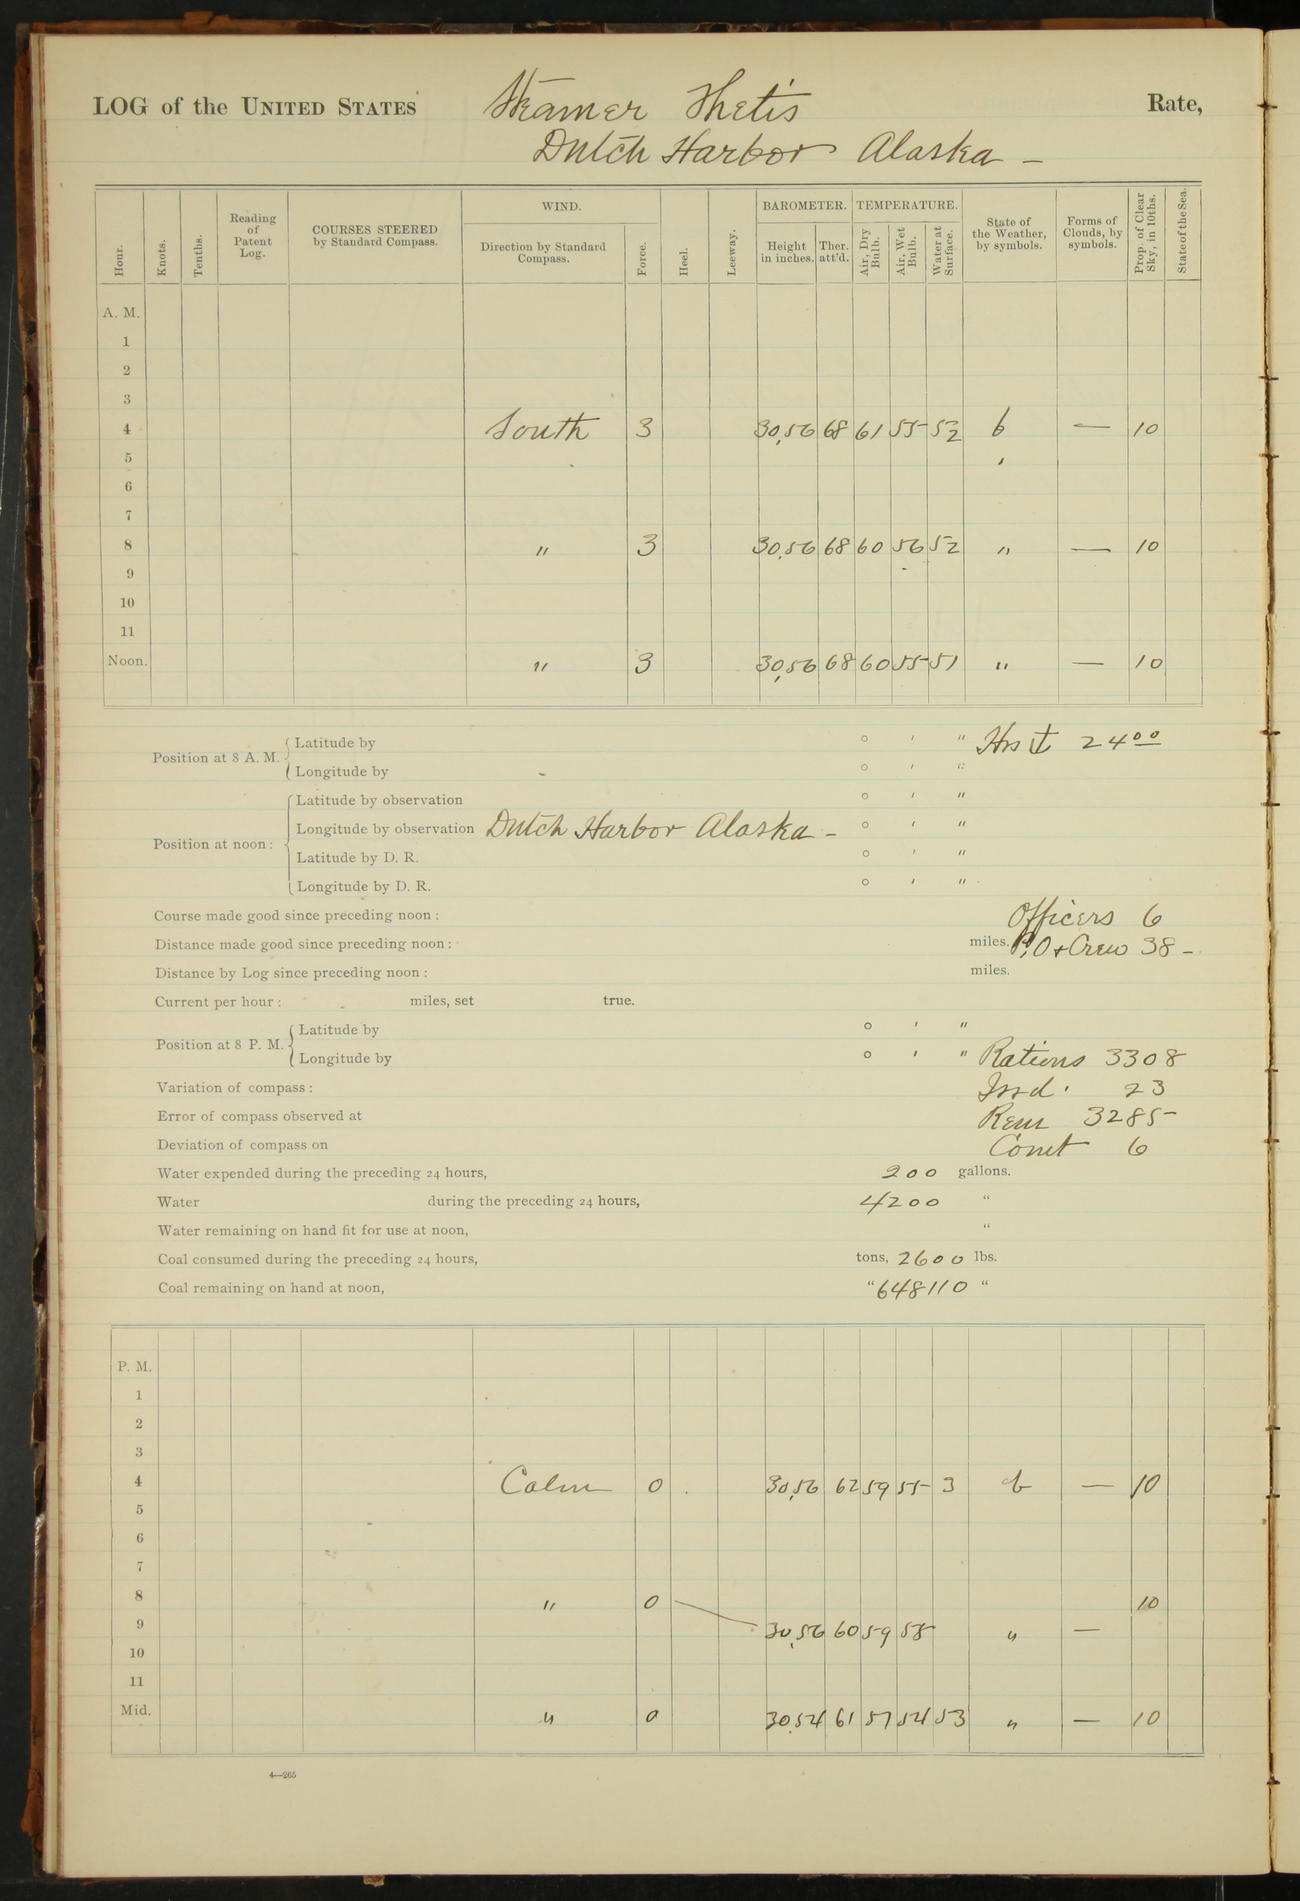 LOG of the UNITED STATES Steamer Thetis Rate,
Dutch Harbor Alaska -
Hour. Knots. Tenths. Reading of Patent Log. COURSES STEERED by Standard Compass. WIND. Direction by Standard Compass. Force. Heel. Leeway. BAROMETER. Height in inches. Ther. att'd. TEMPERATURE. Air, Dry Bulb. Air, Wet Bulb. Water at Surface. State of the Weather, by symbols. Forms of Clouds, by symbols. Prop. of Clear Sky, in 10ths. State of the Sea.
A. M.
1
2
3
4 South 3 30.56 68 61 55 52 b — 10
5
6
7
8 " 3 30.56 68 60 56 52 " — 10
9
10
11
Noon. " 3 30.56 68 60 55 51 " — 10
Position at 8 A. M. Latitude by ° ' " 24 00
Longitude by ° ' "
Position at noon: Latitude by observation ° ' "
Longitude by observation Dutch Harbor Alaska - ° ' "
Latitude by D. R. ° ' "
Longitude by D. R. ° ' "
Course made good since preceding noon: Officers 6
Distance made good since preceding noon: miles. P.O + Crew 38 -
Distance by Log since preceding noon: miles.
Current per hour: miles, set true.
Position at 8 P. M. Latitude by ° ' "
Longitude by ° ' " Rations 3308
Variation of compass: Issd. 23
Error of compass observed at Rem 3285
Deviation of compass on 6
Water expended during the preceding 24 hours, 200 gallons.
Water during the preceding 24 hours, 4200 "
Water remaining on hand fit for use at noon, "
Coal consumed during the preceding 24 hours, tons, 2600 lbs.
Coal remaining on hand at noon, " 648110 "
P. M.
1
2
3
4 Calm 0 30.56 62 59 55 3 b — 10
5
6
7
8 " 0 10
9 30.56 60 59 58 " —
10
11
Mid. " 0 30.54 61 57 54 53 " — 10
4—265